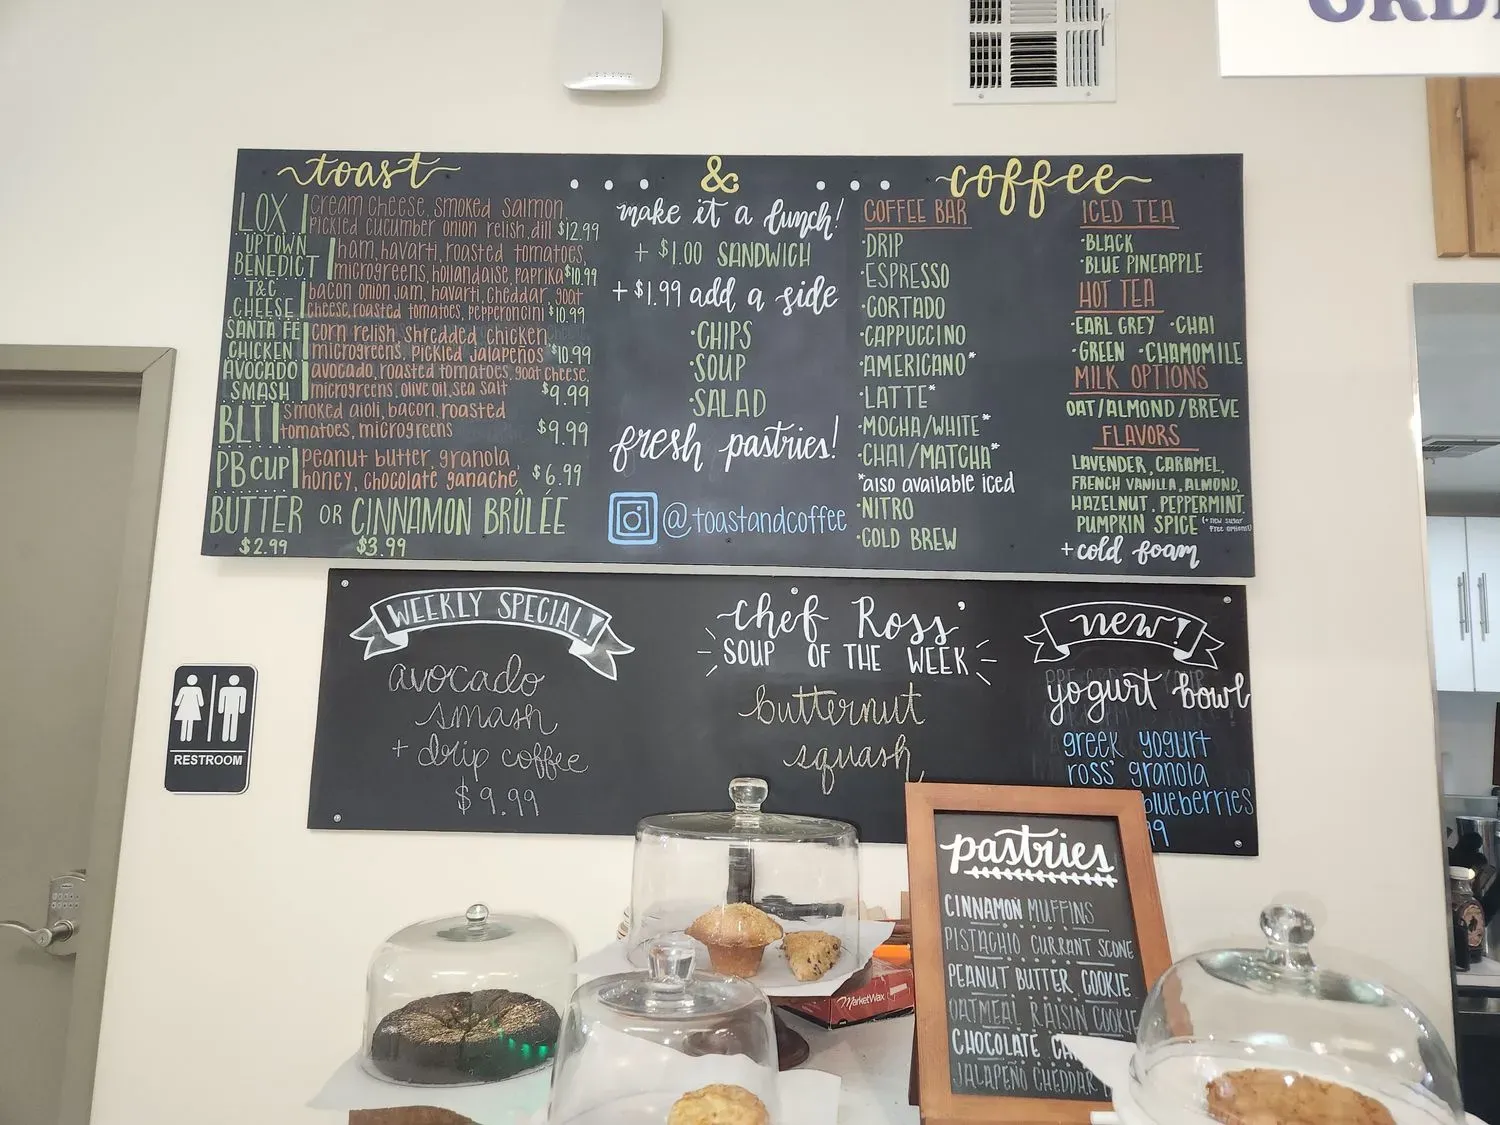 ORD
toast & coffee
LOX cream cheese, smoked salmon,
pickled cucumber onion relish, dill $12.99
UPTOWN BENEDICT ham, havarti, roasted tomatoes,
microgreens, hollandaise, paprika $10.99
T&C CHEESE bacon onion jam, havarti, cheddar, goat
cheese, roasted tomatoes, pepperoncini $10.99
SANTA FE CHICKEN corn relish, shredded chicken
microgreens, pickled jalapeños $10.99
AVOCADO SMASH avocado, roasted tomatoes, goat cheese,
microgreens, olive oil, sea salt $9.99
BLT smoked aioli, bacon, roasted
tomatoes, microgreens $9.99
PB CUP peanut butter, granola
honey, chocolate ganache $6.99
BUTTER OR CINNAMON BRÛLÉE
$2.99 $3.99
make it a lunch!
+ $1.00 SANDWICH
+ $1.99 add a side
·CHIPS
·SOUP
·SALAD
fresh pastries!
@toastandcoffee
COFFEE BAR
·DRIP
·ESPRESSO
·CORTADO
·CAPPUCCINO
·AMERICANO*
·LATTE*
·MOCHA/WHITE*
·CHAI/MATCHA*
*also available iced
·NITRO
·COLD BREW
ICED TEA
·BLACK
·BLUE PINEAPPLE
HOT TEA
·EARL GREY ·CHAI
·GREEN ·CHAMOMILE
MILK OPTIONS
OAT/ALMOND/BREVE
FLAVORS
LAVENDER, CARAMEL,
FRENCH VANILLA, ALMOND,
HAZELNUT, PEPPERMINT,
PUMPKIN SPICE
+cold foam
WEEKLY SPECIAL!
avocado
smash
+ drip coffee
$9.99
chef Ross'
SOUP OF THE WEEK
butternut
squash
new!
yogurt bowl
greek yogurt
ross' granola
blueberries
99
RESTROOM
pastries
CINNAMON MUFFINS
PISTACHIO CURRANT SCONE
PEANUT BUTTER COOKIE
OATMEAL RAISIN COOKIE
CHOCOLATE
JALAPEÑO CHEDDAR
MarketWax